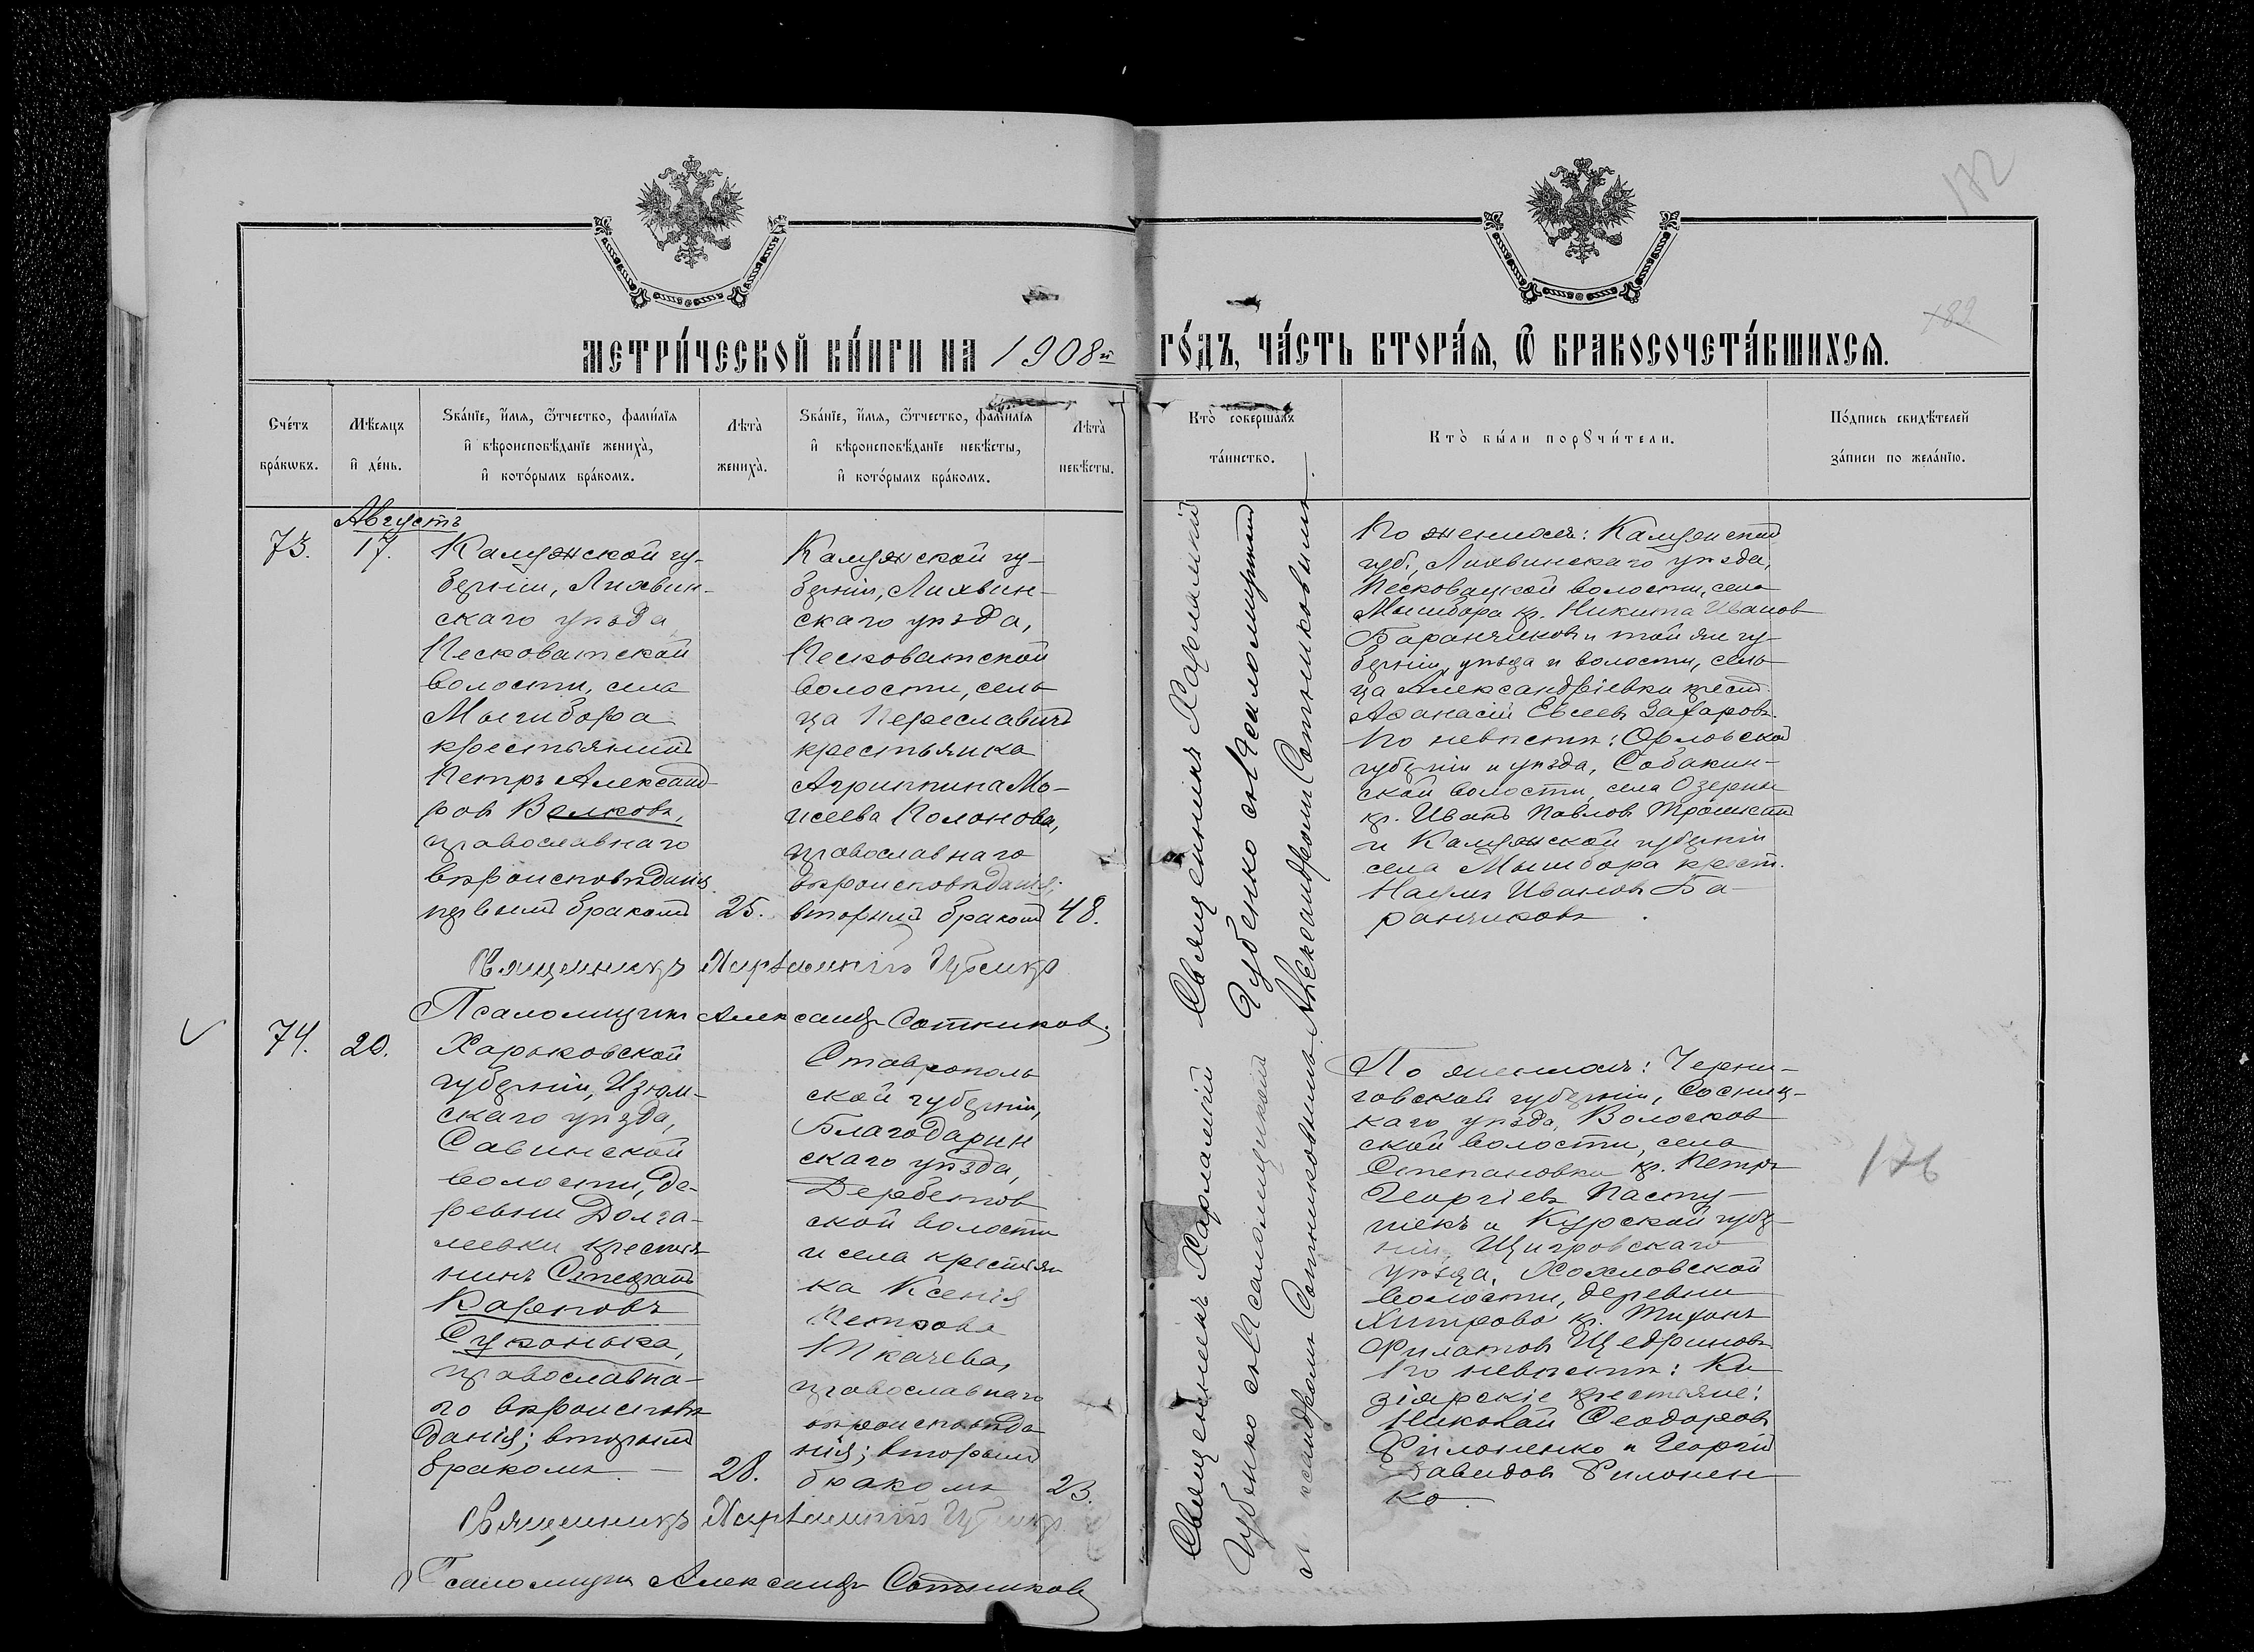 172
189
МЕТРИ́ЧЕСКОЙ КНИ́ГИ НА 1908й ГО́ДЪ, ЧА́СТЬ ВТОРА́Я, Ѡ БРАКОСОЧЕТА́ВШИХСЯ.
Сче́тъ бра́кѡвъ.
Мѣ́сяцъ и де́нь.
Зва́нїе, и́мя, ѻ́тчество, фами́лїя
и вѣроисповѣ́данїе жениха̀,
и кото́рымъ бра́комъ.
Лѣта̀ жениха̀.
Зва́нїе, и́мя, ѻ́тчество, фами́лїя
и вѣроисповѣ́данїе невѣ́сты,
и кото́рымъ бра́комъ.
Лѣта̀ невѣ́сты.
Кто̀ соверша́лъ
та́инство.
Кто̀ бы́ли порꙋчи́тели.
По́дпись свидѣ́телей
за́писи по жела́нїю.
Августъ
73.
17.
Калужской гу-
берніи, Лихвин-
скаго уѣзда
Песковатской
волости, села
Мышбора
крестьянинъ
Петръ Александ-
ров Волковъ,
православнаго
вѣроисповѣданія
первымъ бракомъ
25.
Калужской гу-
берніи, Лихвин-
скаго уѣзда,
Песковатской
волости, сель-
ца Переславичъ
крестьянка
Агриппина Мо-
исеева Полонова,
православнаго
вѣроисповѣданія;
вторымъ бракомъ
48.
Священникъ Харлампій Чубенко
Псаломщикъ Александръ Сотниковъ.
Священникъ Харлампій
Чубенко съ Псаломщикомъ
Александромъ Сотниковымъ.
По женихѣ: Калужской
губ., Лихвинскаго уѣзда,
Песковацкой волости, села
Мышбора кр. Никита Иванов
Баранчиковъ и той же гу-
берніи, уѣзда и волости, сель-
ца Александріевки крест.
Афанасій Евсеевъ Захаровъ.
По невѣстѣ: Орловской
губерніи и уѣзда, Собакин-
ской волости, села Озерки
кр. Иванъ Павловъ
и Калужской губерніи
села Мышбора крест.
Наумъ Ивановъ Ба-
ранчиковъ.
74.
20.
Харьковской
губерніи, Изюм-
скаго уѣзда,
Савинской
волости, де-
ревни Долга-
леевки крестья-
нинъ Стефанъ
Карповъ
Суконька,
православна-
го вѣроисповѣ-
данія; вторымъ
бракомъ. —
28.
Ставрополь
ской губерніи,
Благодарин
скаго уѣзда,
Дербетов
ской волости
и села крестьян
ка Ксенія
Петрова
Ткачева,
православнаго
вѣроисповѣда
нія; вторымъ
бракомъ
23.
Священникъ Харлампій Чубенко
Псаломщикъ Александръ Сотниковъ
Священникъ Харлампій
Чубенко съ Псаломщикомъ
Александромъ Сотниковымъ.
По женихѣ: Черни-
говской губерніи, Сосниц-
каго уѣзда, Волосков
ской волости, села
Степановки кр. Петръ
Георгіевъ Пасту-
шекъ и Курской губер-
ніи, Щигровскаго
уѣзда, Хохловской
волости, деревни
Хитрово кр. Тихонъ
Филатовъ Щедриновъ
По невѣстѣ: Ки-
зіярскіе крестьяне:
Николай Феодоровъ
Филоненко и Георгій
Давидовъ Филонен-
ко.
176